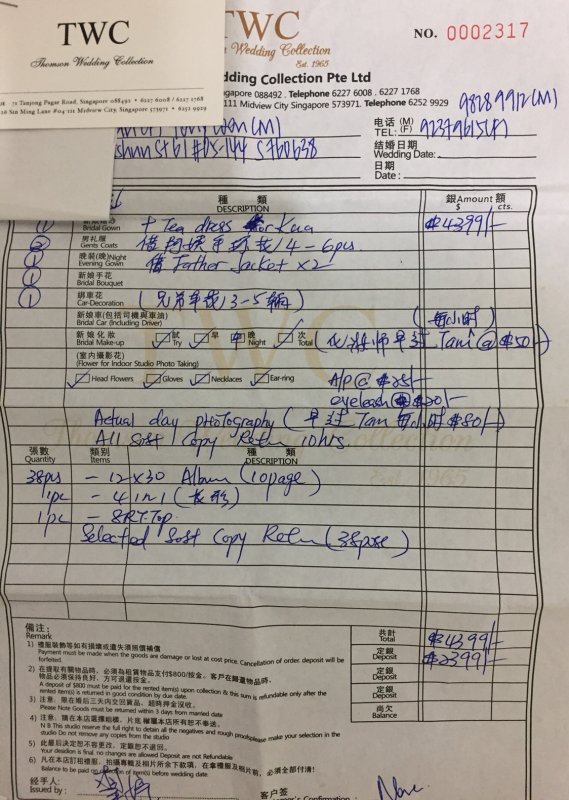 TWC
Thomson Wedding Collection
71 Tanjong Pagar Road, Singapore 088492 • 6227 6008 / 6227 1768
26 Sin Ming Lane #04-111 Midview City, Singapore 573971 • 6252 9929
TWC
Wedding Collection
Est. 1965
NO. 0002317
dding Collection Pte Ltd
gapore 088492 . Telephone 6227 6008 . 6227 1768
111 Midview City Singapore 573971. Telephone 6252 9929
98289912(M)
电话 (M)
TEL: (F) 92379615(F)
St61 #05-144 S760638
结婚日期
Wedding Date:
日期
Date :
種 類 銀Amount 額
DESCRIPTION $ cts.
① 新娘禮服 Bridal Gown + Tea dress or Kua $4399/-
② 男礼服 Gents Coats 4-6pcs
① 晚装(晚)Night Evening Gown 借 Father Jacket x2
① 新娘手花 Bridal Bouquet
① 綁車花 Car-Decoration (兄弟車花 3-5辆)
新娘車(包括司機與車油)
Bridal Car (Including Driver)
(每小时)
新娘化妝 Bridal Make-up 試 Try 早 晚 Night 次 Total (化妆师早过 7am @ $50/-
(室内攝影花)
(Flower for Indoor Studio Photo Taking)
Head Flowers Gloves Necklaces Ear-ring A/P @ $25/-
eyelash @ $20/-
Actual day photography (早过 7am 每小时 $80/-)
All Soft Copy Return 10hrs.
張數 類別 種 類
Quantity Items DESCRIPTION
38pcs - 12x30 Album (10page)
1pc - 4 in 1
1pc - 8R T.Top
Selected Soft Copy Return (38pose)
備注:
Remark
1) 禮服裝飾等如有損壞或遺失須照價補償
Payment must be made when the goods are damaged or lost at cost price. Cancellation of order. deposit will be
forfeited.
2) 在提取有關物品時，必須為租賃物品支付$800/按金。客戶在歸還物品時，
物品必須保持良好，方可退還按金。
A deposit of $800 must be paid for the rented item(s) upon collection & this sum is refundable only after the
rented item(s) is returned in good condition by due date.
3) 注意．限在婚后三天内交回貨品，超時押金沒收。
Please Note Goods must be returned within 3 days from married date
4) 注意．請在本店選擇組樣，片底 權屬本店所有恕不奉送．
N B This studio reserve the full right to detain all the negatives and rough proofs please make your selection in the
studio Do not remove any copies from the studio
5) 此最后決定恕不容更改，定銀恕不退回。
Your desistion is final. no changes are allowed Deposit are not Refundable
6) 凡在本店訂租禮服，拍攝專輯及相片所余下款項，在拿禮服及相片前，必須全部付清!
Balance to be paid on of item(s) before wedding date
共計 Total $4399/-
定銀 Deposit $2399/-
定銀 Deposit
定銀 Deposit
尚欠 Balance
经手人:
Issued by :
客户签
Confirmation :